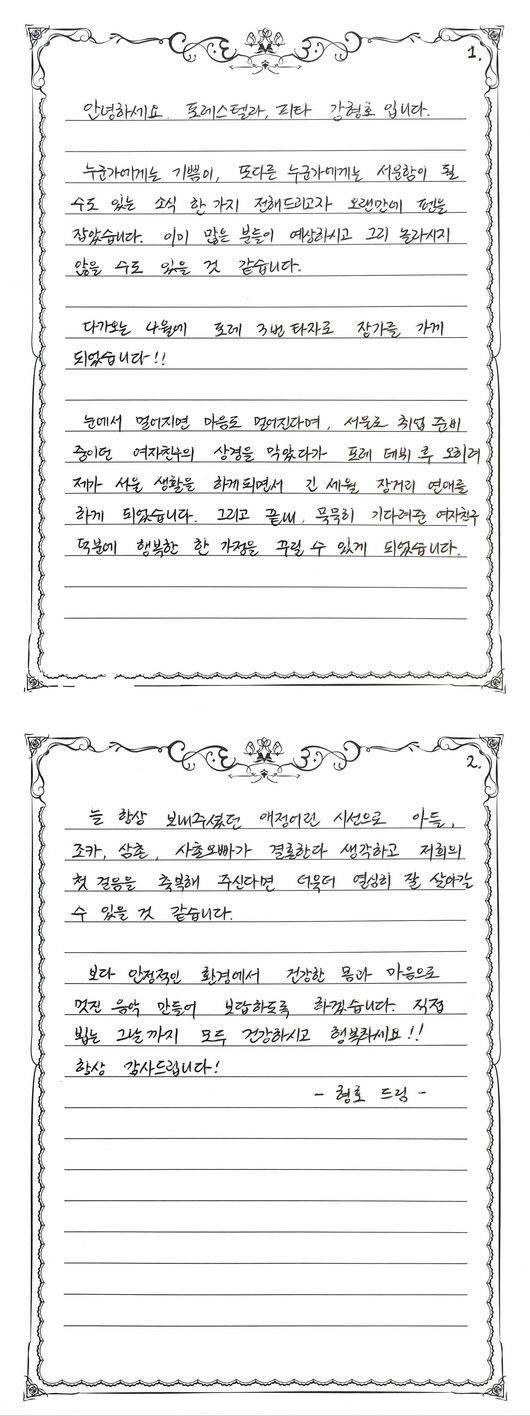 1.
안녕하세요. 포레스텔라, 피타 강형호 입니다.
누군가에게는 기쁨이, 또다른 누군가에게는 서운함이 될
수도 있는 소식 한 가지 전해드리고자 오랜만에 펜을
잡았습니다. 이미 많은 분들이 예상하시고 그리 놀라시지
않을 수도 있을 것 같습니다.
다가오는 4월에 포레 3번 타자로 장가를 가게
되었습니다!!
눈에서 멀어지면 마음도 멀어진다며, 서울로 취업 준비
중이던 여자친구의 상경을 막았다가 포레 데뷔 후 오히려
제가 서울 생활을 하게되면서 긴 세월 장거리 연애를
하게 되었습니다. 그리고 끝내, 묵묵히 기다려준 여자친구
덕분에 행복한 한 가정을 꾸릴 수 있게 되었습니다.
2.
늘 항상 보내주셨던 애정어린 시선으로 아들,
조카, 삼촌, 사촌오빠가 결혼한다 생각하고 저희의
첫 걸음을 축복해 주신다면 더욱더 열심히 잘 살아갈
수 있을 것 같습니다.
보다 안정적인 환경에서 건강한 몸과 마음으로
멋진 음악 만들어 보답하도록 하겠습니다. 직접
뵙는 그날까지 모두 건강하시고 행복하세요!!
항상 감사드립니다!
- 형호 드림 -